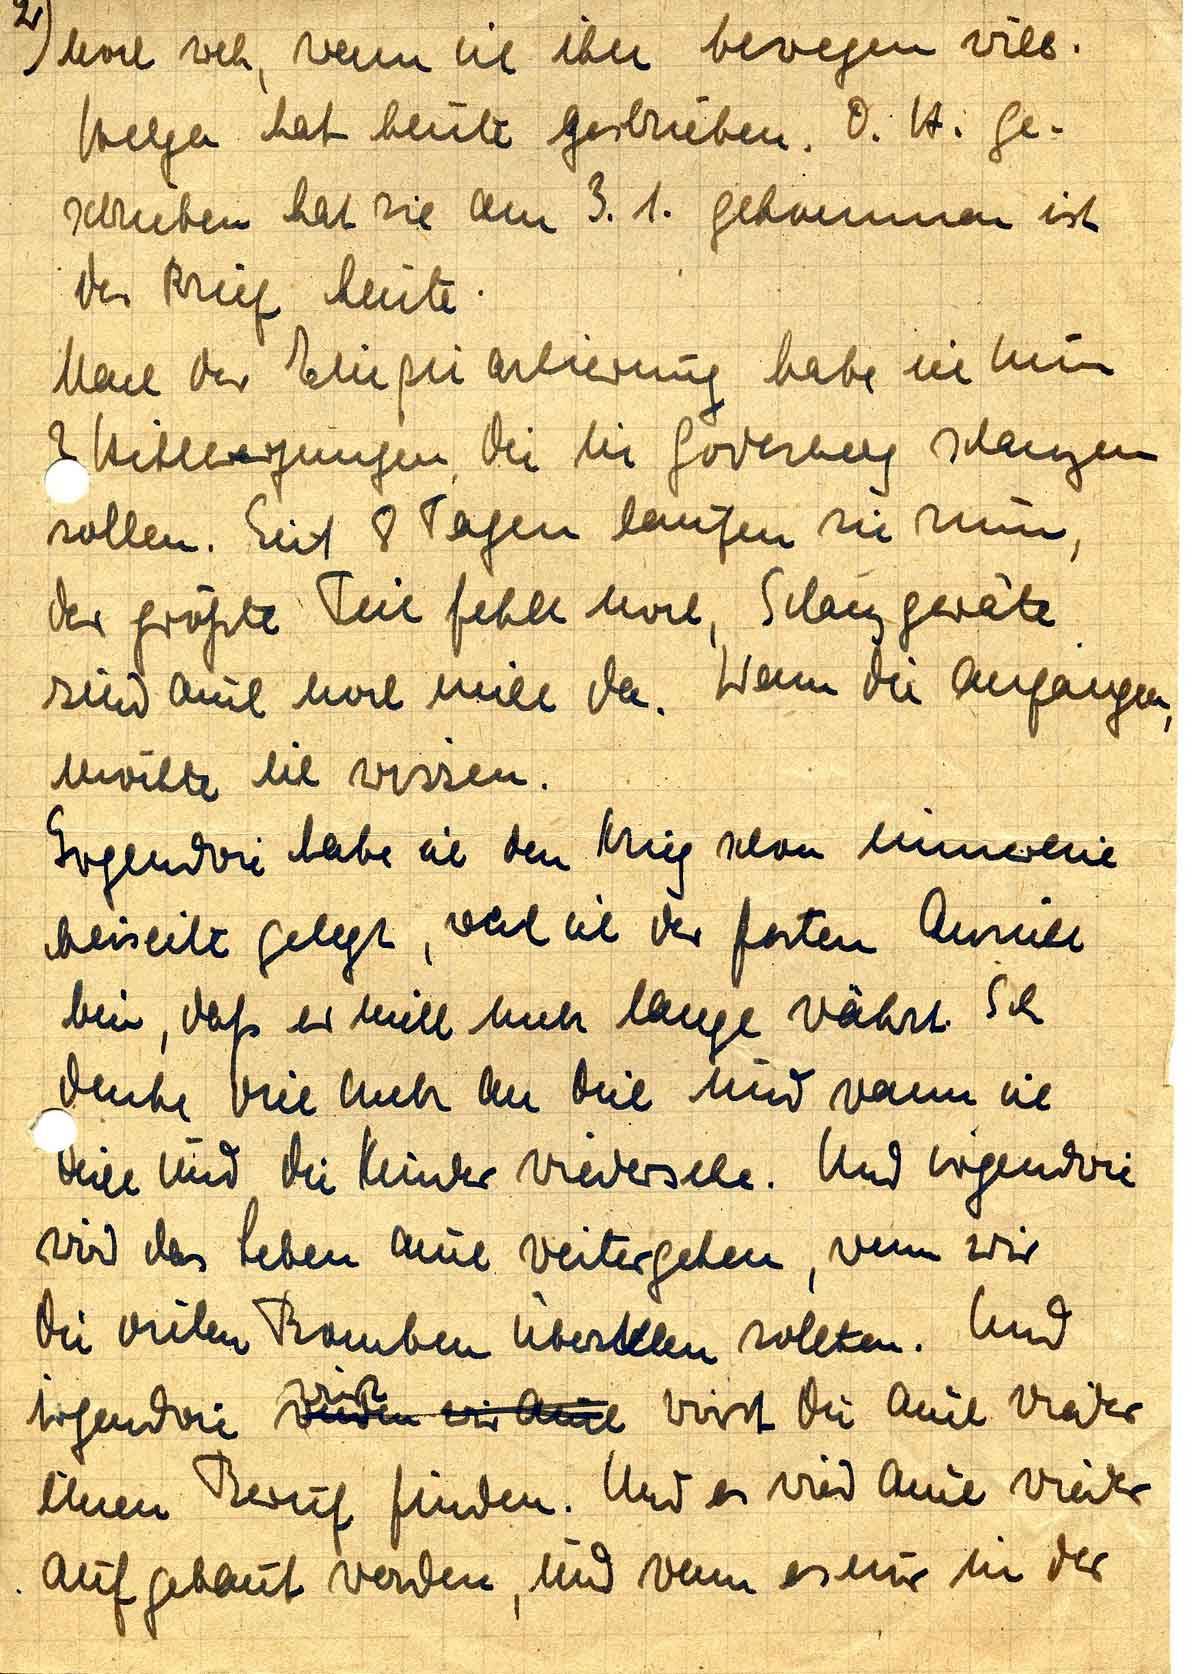 2)
noch weh, wenn sie ihn bewegen will.
Helga hat heute geschrieben. D. H. ge-
schrieben hat sie am 3. 1. gekommen ist
der Brief heute.
Nach der Einquartierung habe ich nun
2 Hitlerjungen, die in Godesberg schanzen
sollen. Seit 8 Tagen laufen sie nun,
der größte Teil fehlt noch, Schanzgeräte
sind auch noch nicht da. Wann die anfangen,
möchte ich wissen.
Irgendwie habe ich den Krieg schon innerlich
beiseite gelegt, weil ich der festen Ansicht
bin, daß er nicht mehr lange währt. Ich
denke viel mehr an Dich und wann ich
Dich und die Kinder wiedersehe. Und irgendwie
wird das Leben auch weitergehen, wenn wir
die vielen Bomben überstehen sollten. Und
irgendwie wirst Du auch wieder
einen Beruf finden. Und es wird auch wieder
aufgebaut werden, und wenn es nur in der